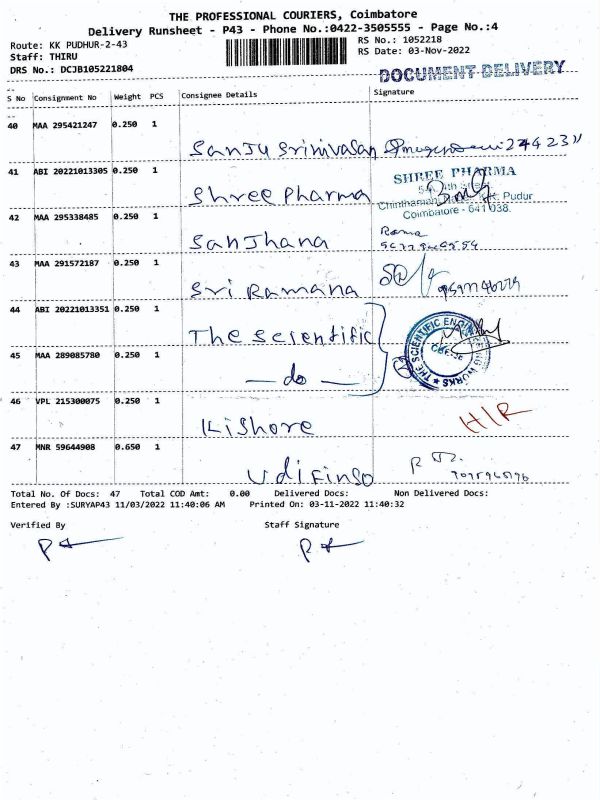 THE PROFESSIONAL COURIERS, Coimbatore
Delivery Runsheet - P43 - Phone No.:0422-3505555 - Page No.:4
Route: KK PUDHUR-2-43 RS No.: 1052218
Staff: THIRU RS Date: 03-Nov-2022
DRS No.: DCJB105221804
DOCUMENT DELIVERY
S No Consignment No Weight PCS Consignee Details Signature
40 MAA 295421247 0.250 1
Sanju Srinivasan
41 ABI 20221013305 0.250 1 SHREE PHARMA
Shree Pharma Pudur
Coimbatore - 641 038.
42 MAA 295338485 0.250 1 Rama
Sanjhana
43 MAA 291572187 0.250 1
Sri Ramana
44 ABI 20221013351 0.250 1
The Scientific THE SCIENTIFIC ENGINEERING WORKS
45 MAA 289085780 0.250 1 CBE-38
— do —
46 VPL 215300075 0.250 1
Kishore HIR
47 MNR 59644908 0.650 1
Udifinso
Total No. Of Docs: 47 Total COD Amt: 0.00 Delivered Docs: Non Delivered Docs:
Entered By :SURYAP43 11/03/2022 11:40:06 AM Printed On: 03-11-2022 11:40:32
Verified By Staff Signature